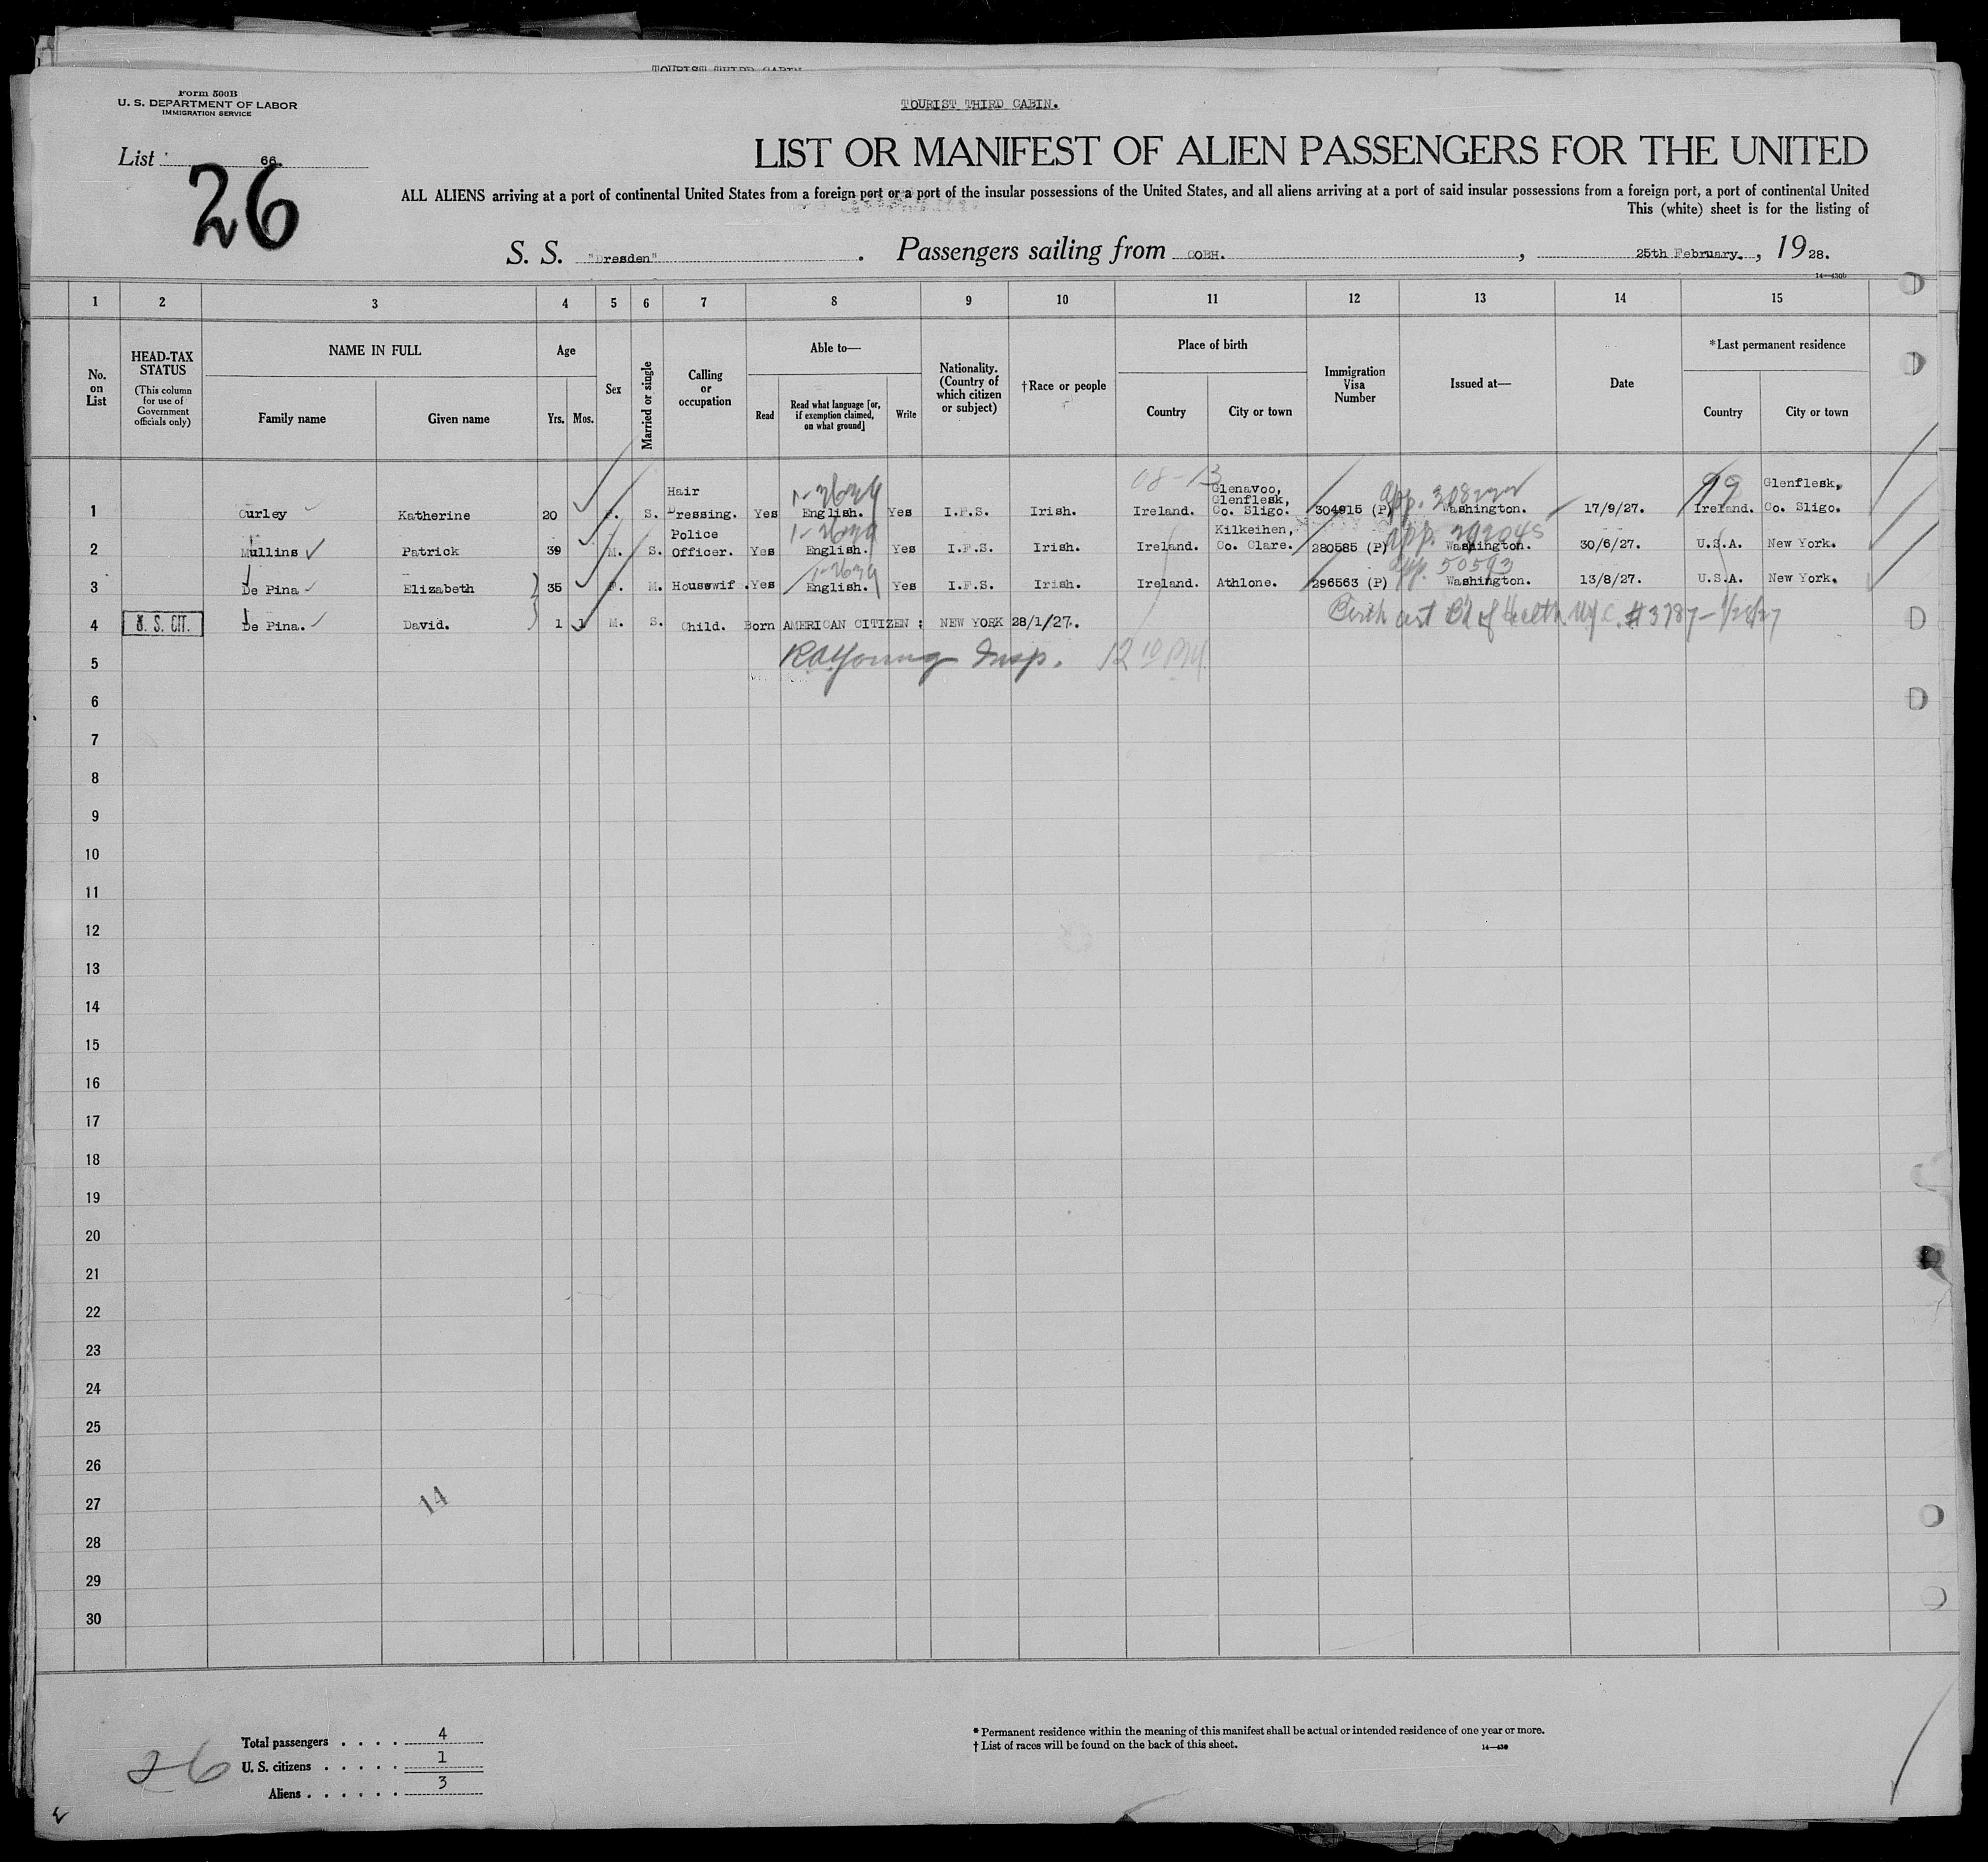 TOURIST THIRD CABIN
Form 500B
U. S. DEPARTMENT OF LABOR
IMMIGRATION SERVICE
TOURIST THIRD CABIN.
List 66.
26
LIST OR MANIFEST OF ALIEN PASSENGERS FOR THE UNITED
ALL ALIENS arriving at a port of continental United States from a foreign port or a port of the insular possessions of the United States, and all aliens arriving at a port of said insular possessions from a foreign port, a port of continental United
This (white) sheet is for the listing of
S. S. "Dresden" . Passengers sailing from COBH. , 25th February. , 1928.
14—430b
1 2 3 4 5 6 7 8 9 10 11 12 13 14 15
No. on List
HEAD-TAX STATUS
(This column for use of Government officials only)
NAME IN FULL
Family name Given name
Age
Yrs. Mos.
Sex
Married or single
Calling or occupation
Able to—
Read Read what language [or, if exemption claimed, on what ground] Write
Nationality. (Country of which citizen or subject)
†Race or people
Place of birth
Country City or town
Immigration Visa Number
Issued at—
Date
*Last permanent residence
Country City or town
08-13 99
1 Curley Katherine 20 F. S. Hair Dressing. Yes English. Yes I.F.S. Irish. Ireland. Glenavoo, Glenflesk, Co. Sligo. 304915 (P) Washington. 17/9/27. Ireland. Glenflesk, Co. Sligo.
2 Mullins Patrick 39 M. S. Police Officer. Yes English. Yes I.F.S. Irish. Ireland. Kilkeihen, Co. Clare. 280585 (P) App. Washington. 30/6/27. U.S.A. New York.
3 De Pina Elizabeth 35 F. M. Housewif. Yes English. Yes I.F.S. Irish. Ireland. Athlone. 296563 (P) App. 50593 Washington. 13/8/27. U.S.A. New York.
4 U. S. CIT. De Pina. David. 1 1 M. S. Child. Born AMERICAN CITIZEN : NEW YORK 28/1/27. Birth Cert Bd of Health. N.Y.C. #3787-1/28/27
5 RA Young Insp. 12 10 PM
6
7
8
9
10
11
12
13
14
15
16
17
18
19
20
21
22
23
24
25
26
27 14
28
29
30
Total passengers . . . . 4
U. S. citizens . . . . . 1
Aliens . . . . . . 3
26
* Permanent residence within the meaning of this manifest shall be actual or intended residence of one year or more.
† List of races will be found on the back of this sheet.
14—430